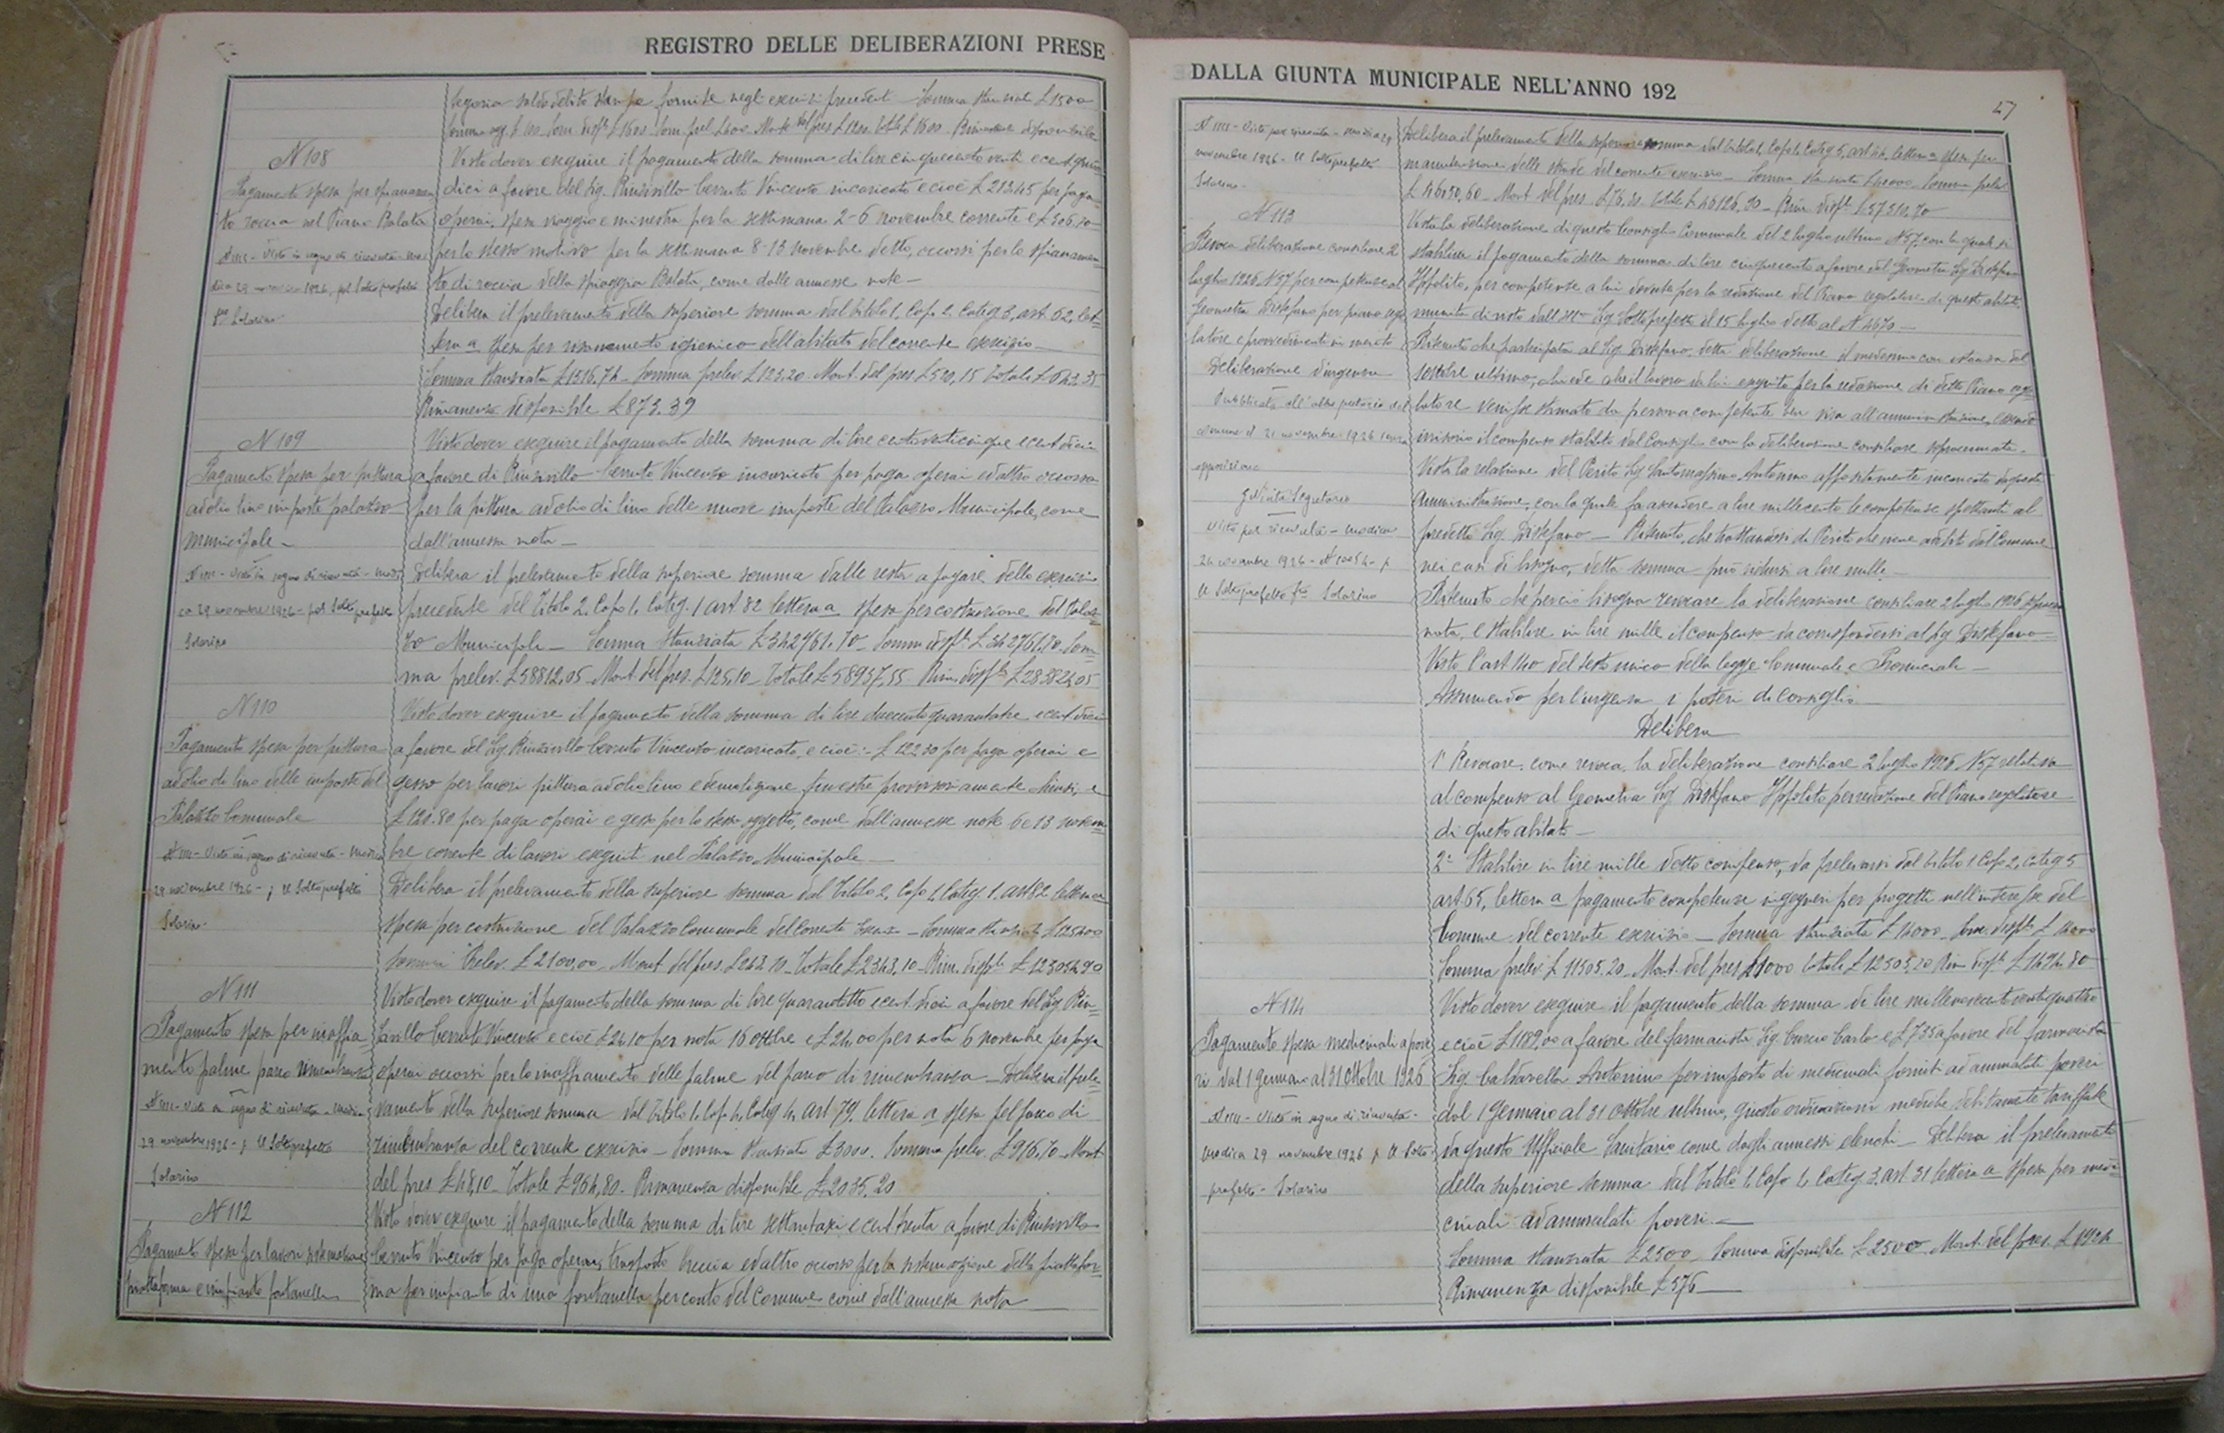 REGISTRO DELLE DELIBERAZIONI PRESE
fornite negli esercizi precedenti - Somma stanziata £ 1500
N 108
Pagamento spesa per spianamen
to roccia nel Piano Balata
29 novembre 1926
Solarino
Visto dover eseguire il pagamento della somma di lire cinquecento venti e cent quin
dici a favore del Sig. Vincenzo incaricato e cioè £ 213.45 per paga
operai, spese viaggio e minestra per la settimana 2-6 novembre corrente e £ 306,70
per lo stesso motivo per la settimana 8-13 novembre detto, occorsi per lo spianamen
to di roccia della spiaggia Balata, come dalle annesse note -
Delibera il prelevamento della superiore somma dal titolo 1, Capo 2, Categ 3, art. 52, let-
tera a spesa per risanamento igienico dell'abitato del corrente esercizio
Somma stanziata £ 1516.74 - Somma prelev £ 123.20 - Mont. del pres £ 520,15 Totale £ 643.35
Rimanenza disponibile £ 873.39
N 109
Pagamento spesa per pittura
ad olio lino imposte palazzo
municipale -
29 novembre 1926
Solarino
Visto dover eseguire il pagamento della somma di lire centoventicinque e cent dieci
a favore di Vincenzo incaricato per paga operai ed altro occorso
per la pittura ad olio di lino delle nuove imposte del Palazzo Municipale, come
dall'annessa nota -
Delibera il prelevamento della superiore somma dalle reste a pagare dello esercizio
precedente del Titolo 2, Capo 1, Categ. 1 art 82 lettera a spesa per costruzione del Palaz-
zo Municipale - Somma stanziata £ 342761.70 - Somma disple £ 342761,70 - Som-
ma prelev. £ 58812,05 - Mont del pres. £ 125,10 - Totale £ 58937,55 Rim. disple £ 283824,05
N 110
Pagamento spesa per pittura
ad olio di lino delle imposte del
Palazzo Comunale
29 novembre 1926 - Il Sottoprefetto
Solarino
Visto dover eseguire il pagamento della somma di lire duecentoquarantatre e cent dieci
a favore del Sig Vincenzo incaricato, e cioè: - £ 122.30 per paga operai e
gesso per lavori pittura ad olio lino e demolizione finestre provvisoriamente chiusi, e
£ 120.80 per paga operai e gesso per lo stesso oggetto, come dall'annesse note 6 e 13 novem-
bre corrente di lavori eseguiti nel Palazzo Municipale
Delibera il prelevamento della superiore somma dal Titolo 2, Capo 1, Categ. 1, art 82 lettera a
spesa per costruzione del Palazzo Comunale del corrente - Somma stanziata £ 125400
Somma Prelev. £ 2100,00 - Mont del pres £ 243.10 - Totale £ 2343,10 - Rim. disple £ 123056,90
N 111
Pagamento spesa per inaffia-
mento palme parco rimembranza
29 novembre 1926 - Il Sottoprefetto
Solarino
Visto dover eseguire il pagamento della somma di lire quarantotto e cent. dieci a favore del Sig
Vincenzo e cioè £ 24.10 per nota 16 ottobre e £ 24,00 per nota 6 novembre per paga
operai occorsi per lo inaffiamento delle palme del parco di rimembranza - Delibera il prele-
vamento della superiore somma dal titolo 1, Capo 1, Categ 4, art 79, lettera a spesa pel parco di
rimembranza del corrente esercizio - Somma stanziata £ 3000. Somma prelev. £ 916,70 - Mont
del pres £ 48,10 - Totale £ 964,80 - Rimanenza disponibile £ 2035.20
N 112
Pagamento spesa per lavori sistemazione
piattaforma e impianto fontanella
Visto dover eseguire il pagamento della somma di lire settantasei e cent trenta a favore di
Vincenzo per paga operai, trasporto breccia ed altro occorso per la sistemazione della piattafor-
ma per impianto di una fontanella per conto del Comune come dall'annessa nota
DALLA GIUNTA MUNICIPALE NELL'ANNO 192
57
novembre 1926 - Il Sottoprefetto
Solarino
Delibera il prelevamento della superiore somma dal titolo 1, Capo 1, Categ 5, art 44, lettera a spesa per
manutenzione delle strade del corrente esercizio - Somma stanziata - Somma prelev
£ 46050,60 - Mont del pres £ 76,30 Totale £ 46126,90 - Rim disple
N 113
Revoca deliberazione consiliare 2
luglio 1926 N 57 per competenze al
Geometra Distefano per piano rego
latore e provvedimenti in merito
Deliberazione d'urgenza
Pubblicata all'albo pretorio del
Comune il 21 novembre 1926 senza
opposizione
Il Segretario
Visto per ricevuta - Modica
26 novembre 1926
Il Sottoprefetto Solarino
Vista la deliberazione di questo Consiglio Comunale del 2 luglio ultimo N 57 con la quale si
stabiliva il pagamento della somma di lire cinquecento a favore del Geometra Sig Distefano
Ippolito, per competenze a lui dovute per la redazione del Piano regolatore di questo abitato,
munita di visto dall'Ill.mo Sig Sottoprefetto il 15 luglio detto al N 4670 -
Ritenuto che partecipata al Sig. Distefano detta deliberazione il medesimo con istanza del
ottobre ultimo, chiede che il lavoro da lui eseguito per la redazione di detto Piano rego
latore venisse stimato da persona competente
irrisorio il compenso stabilito dal Consiglio con la deliberazione consiliare sopracennata -
Vista la relazione del Perito Sig Antonino appositamente incaricato da questa
Amministrazione, con la quale fa ascendere a lire millecento le competenze spettanti al
predetto Sig. Distefano - Ritenuto, che trattandosi di Perito che viene adibito dal Comune
nei casi di bisogno, detta somma può ridursi a lire mille -
Ritenuto che perciò bisogna revocare la deliberazione consiliare 2 luglio 1926
nota, e stabilire in lire mille il compenso da corrispondersi al Sig Distefano -
Visto l'art 140 del testo unico della legge Comunale e Provinciale -
Assumendo per l'urgenza i poteri di Consiglio -
Delibera
1° Revocare, come revoca, la deliberazione consiliare 2 luglio 1926 N 57 relativa
al compenso al Geometra Sig Distefano Ippolito per redazione del Piano regolatore
di questo abitato -
2° Stabilire in lire mille detto compenso, da prelevarsi dal titolo 1 Capo 2, Categ 5
art 65, lettera a pagamento competenze ingegneri per progetti nell'interesse del
Comune del corrente esercizio - Somma stanziata £ 14000 - Som. disple £ 14000
Somma prelev £ 11505.20 - Mont. del pres £ 1000 Totale £ 12505,20 Rim disple £ 1494.80
N 114
Pagamento spesa medicinali a pove
ri dal 1 gennaio al 31 ottobre 1926
Modica 29 novembre 1926 Il Sotto-
prefetto - Solarino
Visto dover eseguire il pagamento della somma di lire millenovecentoventiquattro
e cioè £ 1189,00 a favore del farmacista Sig. Curcio Carlo e £ 735 a favore del farmacista
Sig. Antonino per importo di medicinali forniti ad ammalati poveri
dal 1 Gennaio al 31 ottobre ultimo, giusto ordinazioni mediche debitamente tariffate
da questo Ufficiale Sanitario come dagli annessi elenchi - Delibera il prelevamento
della superiore somma dal titolo 1, Capo 1, Categ 3, art. 31 lettera a spesa per medi-
cinali ad ammalati poveri -
Somma stanziata £ 2500 - Somma disponibile £ 2500 - Mont. del pres. £ 1924
Rimanenza disponibile £ 576 -